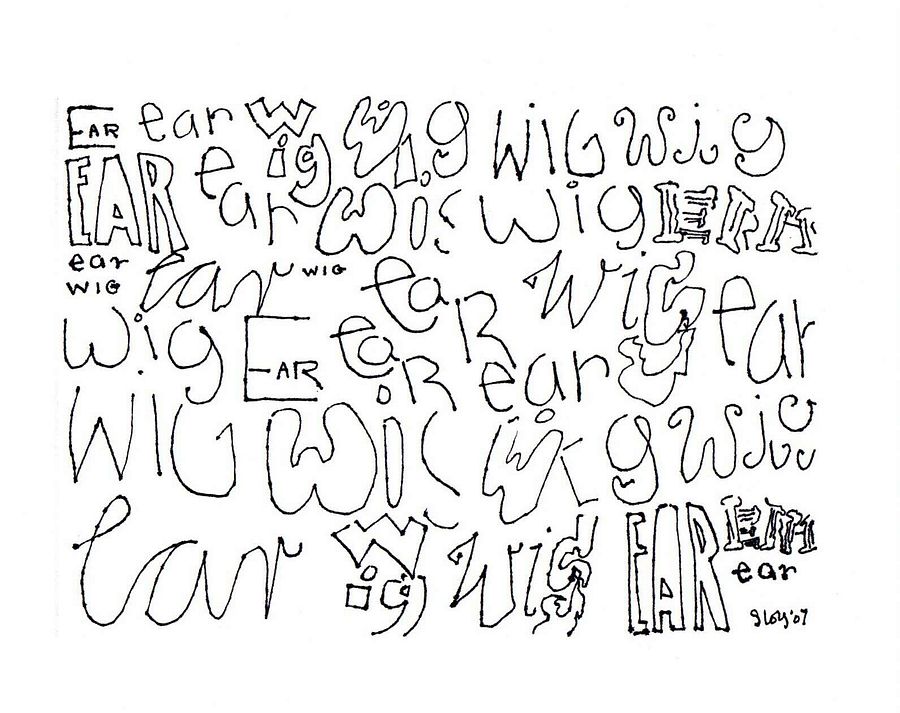 EAR ear Wig Wig WIG Wig
EAR ear Wig Wig EAR
ear ear WIG ear Wig ear
WIG
Wig EAR ear ear
WIG Wig Wig Wig
ear Wig Wig EAR EAR
ear